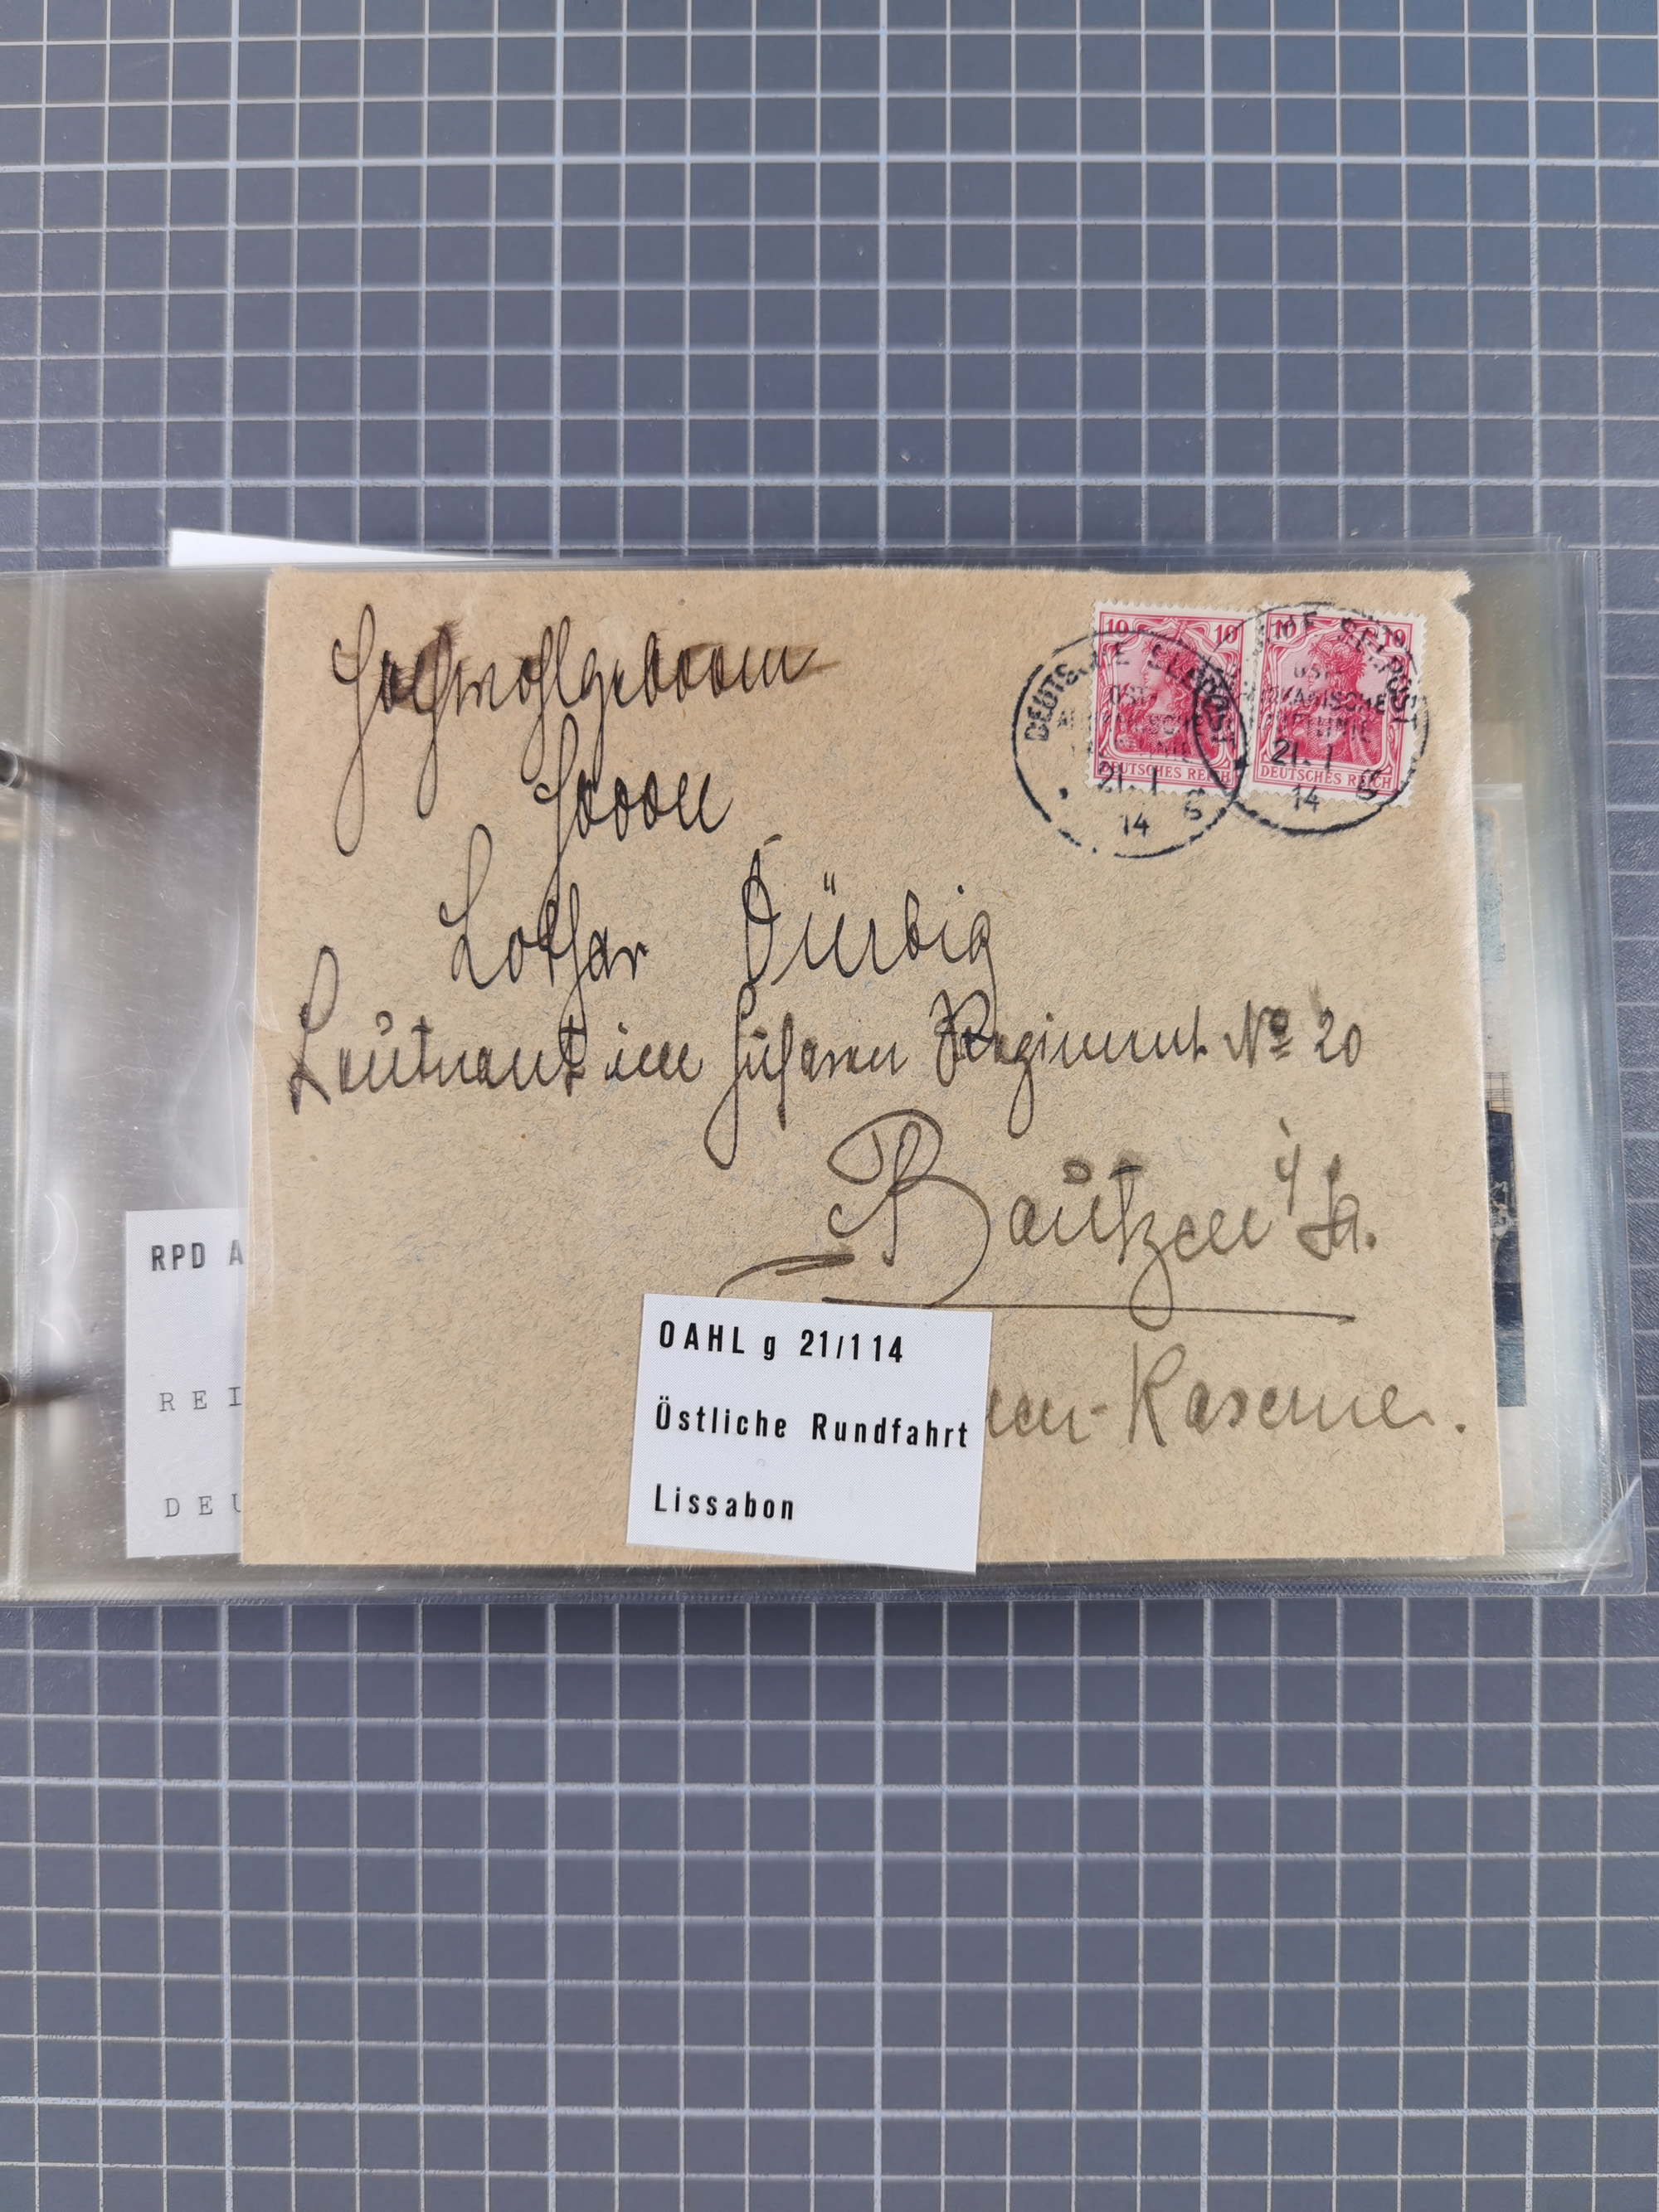 Hochwohlgeboren
Herrn
Lothar Dürbig
Leutnant im Husaren Regiment No 20
Bautzen i/Sa.
en-Kaserne.
10 10
DEUTSCHES REICH
10 10
DEUTSCHES REICH
DEUTSCHE SEEPOST
OST
AFRIKANISCHE
LINIE
21. 1
14 G
DEUTSCHE SEEPOST
OST
AFRIKANISCHE
LINIE
21. 1
14 G
OAHL g 21/114
Östliche Rundfahrt
Lissabon
RPD A
REI
DEU